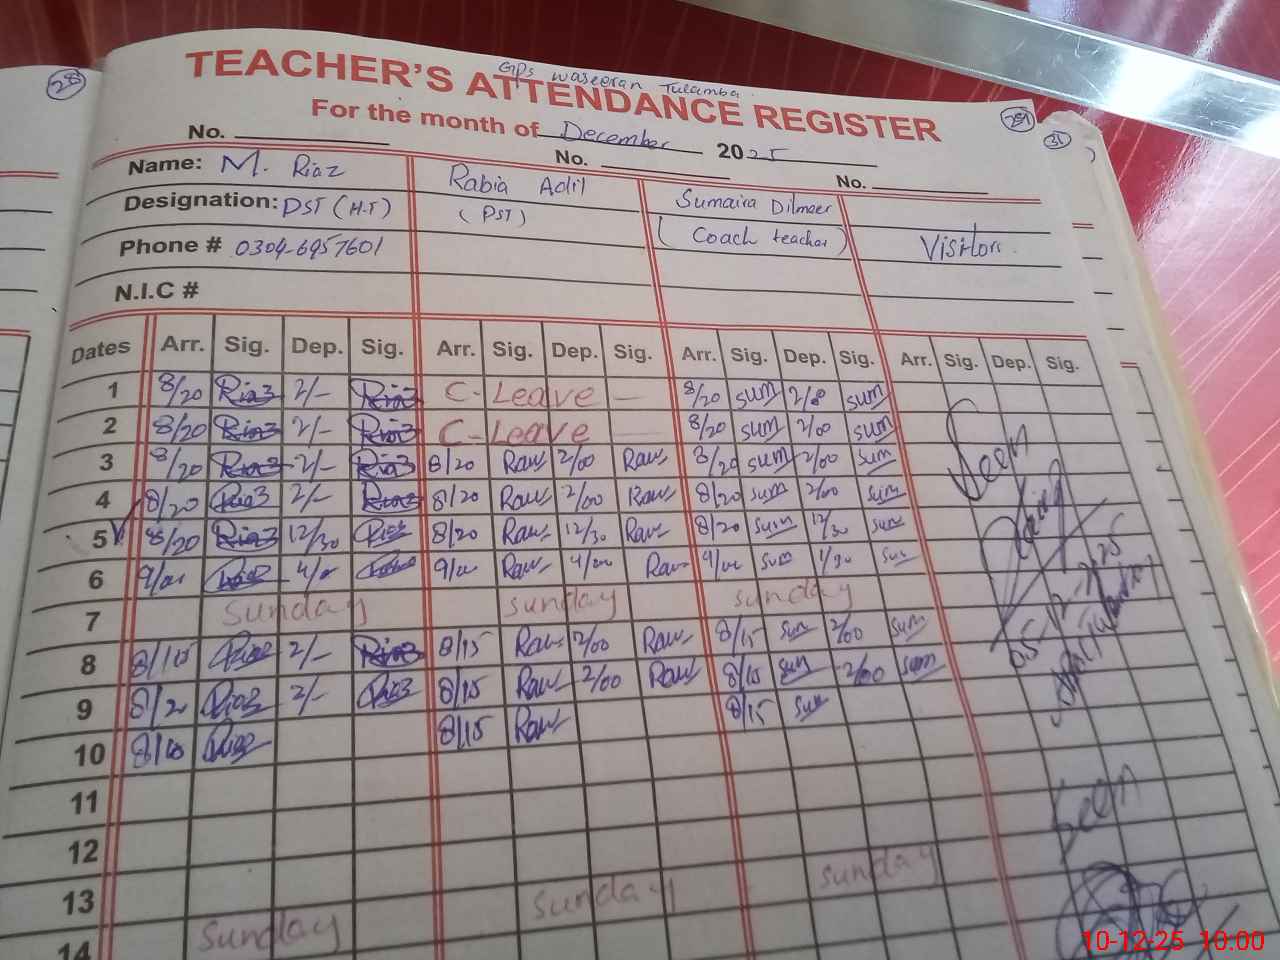 28
GPs waseeran Tulamba
TEACHER'S ATTENDANCE REGISTER
29
31
For the month of December 2025
No. No. No.
Name: M. Riaz Rabia Adil Sumaira Dilmeer
Designation: PST (H.T) (PST) (Coach teacher) Visitors.
Phone # 0304-6957601
N.I.C #
Dates Arr. Sig. Dep. Sig. Arr. Sig. Dep. Sig. Arr. Sig. Dep. Sig. Arr. Sig. Dep. Sig.
1 8/20 Riaz 2/- Riaz C-Leave — 8/20 sum 2/00 sum
2 8/20 Riaz 2/- Riaz C-Leave — 8/20 sum 2/00 sum
3 8/20 Riaz 2/- Riaz 8/20 Raw 2/00 Raw 8/20 sum 2/00 sum
4 8/20 Riaz 2/- Riaz 8/20 Raw 2/00 Raw 8/20 sum 2/00 sum
5 8/20 Riaz 12/30 Riaz 8/20 Raw 12/30 Raw 8/20 sum 12/30 sum
6 9/00 Riaz 4/0 Riaz 9/00 Raw 4/00 Raw 9/00 sum 1/30 sum
7 Sunday Sunday Sunday
8 8/15 Riaz 2/- Riaz 8/15 Raw 2/00 Raw 8/15 sum 2/00 sum
9 8/20 Riaz 2/- Riaz 8/15 Raw 2/00 Raw 8/15 sum 2/00 sum
10 8/10 Riaz 8/15 Raw 8/15 sum
11
12
13
14 Sunday Sunday Sunday
Seen
05-12-25
Seen
10-12-25 10:00